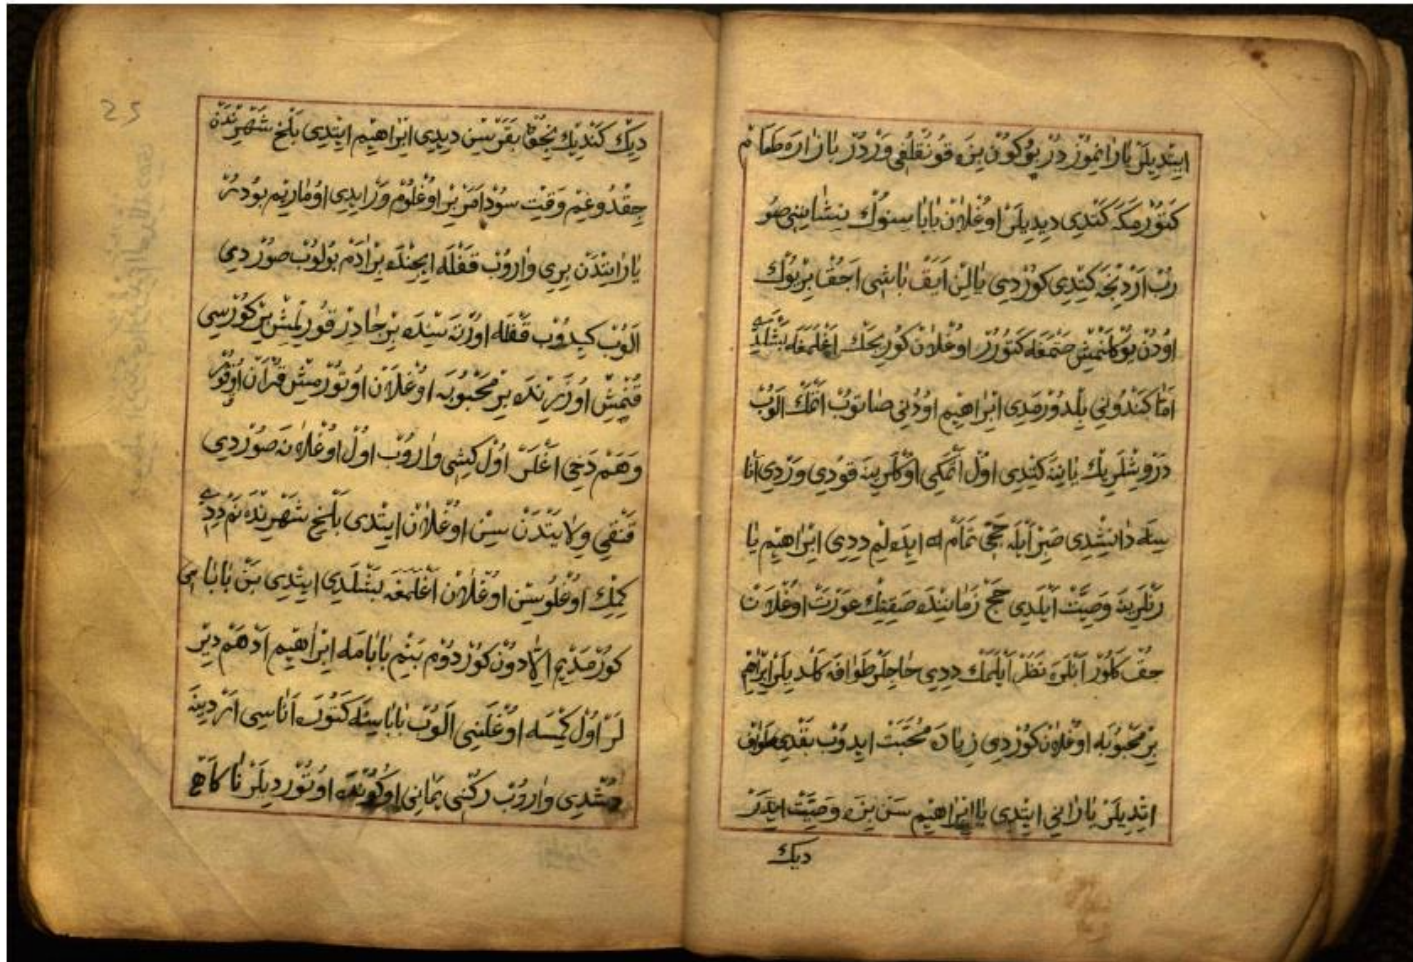 ايتديلر يارانموز در بو كون بزه قونقلغى وردر بازاره طعام
كتورمكه كتدى ديديلر اوغلان باباسنوك نشاينى صو
رب اردنجه كيندى كوردى يالين ايق باشى اجق بر يوك
اودن يوكلنمش صتمغه كتورر اوغلان كوريجك اغلمغه بشلدى
اما كندونى بلدورمدى ابراهيم اودنى صاتوب اتمك الوب
درويشلريك ياننه كيندى اول اتمكى اوكلرينه قودى وردى انا
سيله دانشدى صبر ايله حجى تمام ايده ليم ددى ابراهيم يا
رنلرينه وصيت ايلدى حج زماننده صقينك عورت اوغلان
جق كلور انلره نظر ايلمك ددى حاجلر طوافه كلديلر ابراهيم
بر محبوبه اوغلان كوردى زياده محبت ايدوب بقدى طواف
اتديلر يارانى ايتدى يا ابراهيم سن بزه وصيت ايدر
ديك
25
ديك كنديك نيچون بقرسن ديدى ابراهيم ايتدى بلخ شهرندن
چقدوغم وقت سود امر بر اوغلوم ور ايدى اومارم بودر
ياراندن برى واروب قفله ايچنده بر ادم بولوب صوردى
الوب كيدوب قفله اورته سنده بر چادر قورلمش بر كورسى
قنمش اوزرنده بر محبوبه اوغلان اوتورمش قران اوقور
وهم دخى اغلر اول كشى واروب اول اوغلانه صوردى
قنقى ولايتدن سن اوغلان ايتدى بلخ شهرنده نم ددى
كمك اوغلوسن اوغلان اغلمغه بشلدى ايتدى بن بابامى
كورمديم الا دون كوردوم بنم بابامه ابراهيم ادهم دير
لر اول كيسه اوغلنى الوب باباسنه كتوره اناسى اردينه
دشدى واروب ركنى يمانى اوكونده اوتورديلر ناكاه